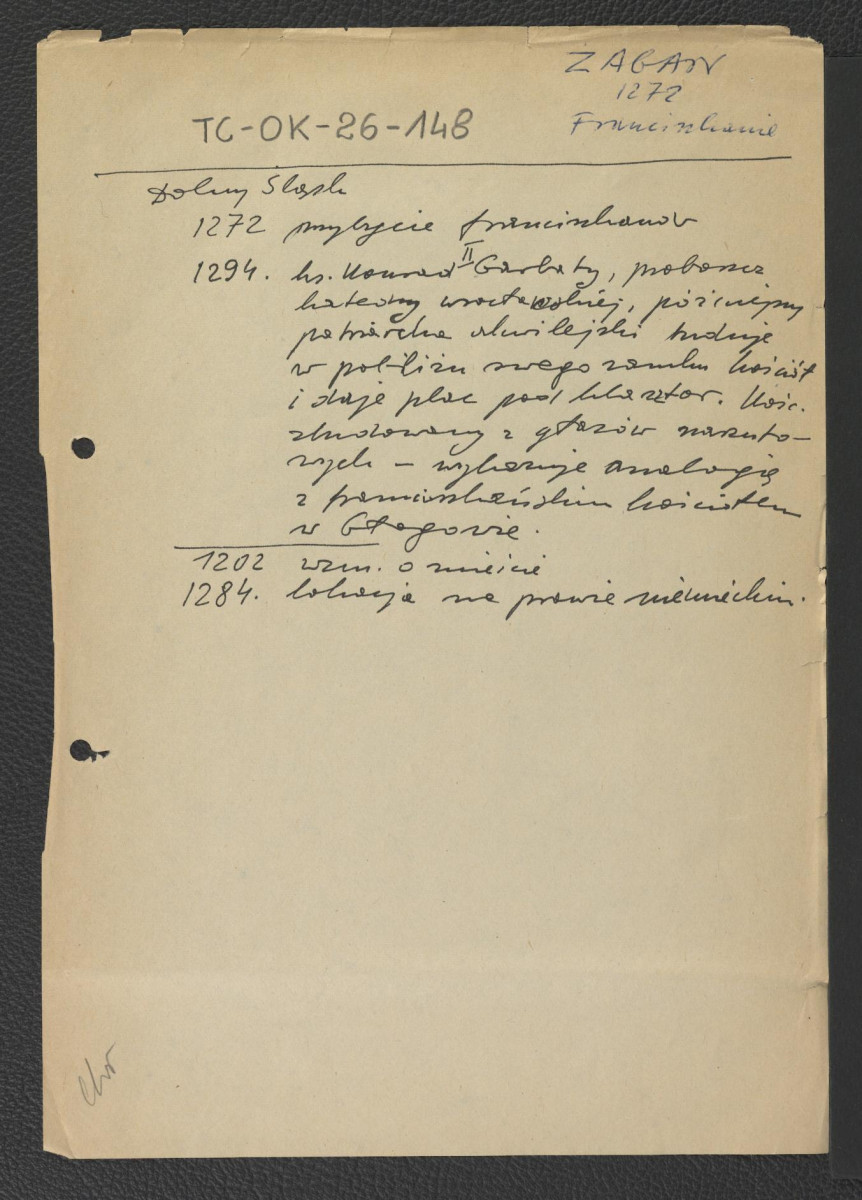 ŻAGAŃ
1272
Franciszkanie
TC-OK-26-148
Dolny Śląsk
1272 przybycie franciszkanów
1294. ks. Konrad II Garbaty, proboszcz
katedry wrocławskiej, późniejszy
patriarcha akwilejski buduje
w pobliżu swego zamku kościół
i daje plac pod klasztor. Kośc.
zbudowany z głazów narzuto-
wych – wykazuje analogię
z franciszkańskim kościołem
w Głogowie.
1202 wzm. o mieście
1284. lokacja na prawie niemieckim.